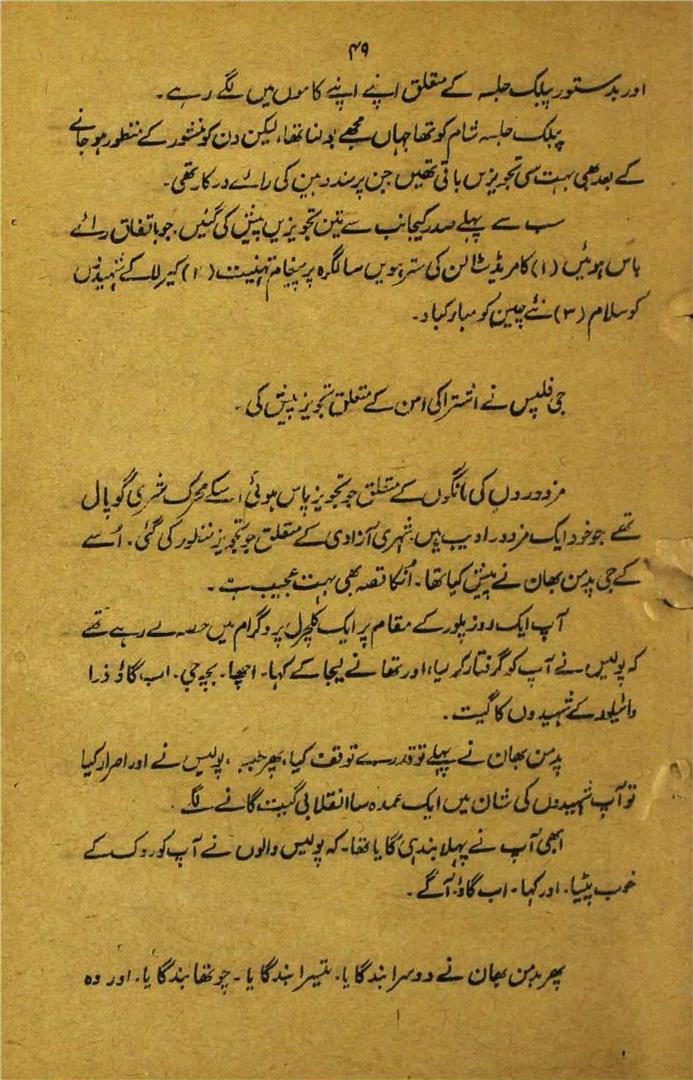 ۴۹
اور بدستور پبلک جلسہ کے متعلق اپنے اپنے کاموں میں لگے رہے۔
پبلک جلسہ شام کو تھا جہاں مجھے بولنا تھا، لیکن دن کو منشور کے منظور ہو جانے
کے بعد بھی بہت سی تجویزیں باقی تھیں جن پر مندوبین کی رائے درکار تھی۔
سب سے پہلے صدر کیجانب سے تین تجویزیں پیش کی گئیں۔ جو باتفاق رائے
پاس ہوئیں (۱) کامریڈ سٹالن کی سترہویں سالگرہ پر پیغام تہنیت (۲) کیرلا کے شہیدوں
کو سلام (۳) نئے چین کو مبارکباد۔
جی فلپس نے اشتراکی امن کے متعلق تجویز پیش کی۔
مزدوروں کی مانگوں کے متعلق جو تجویز پاس ہوئی اسکے محرک شری گوپال
تھے جو خود ایک مزدور ادیب ہیں۔ شہری آزادی کے متعلق جو تجویز منظور کی گئی۔ اُسے
کے جی پدمن بھان نے پیش کیا تھا۔ اُنکا قصہ بھی بہت عجیب ہے۔
آپ ایک روز پلور کے مقام پر ایک کلچرل پروگرام میں حصہ لے رہے تھے
کہ پولیس نے آپ کو گرفتار کر لیا، اور تھانے لیجا کے کہا۔ اچھا۔ بچہ جی۔ اب گاؤ ذرا
وائیلار کے شہیدوں کا گیت۔
پدمن بھان نے پہلے تو قدرے توقف کیا، پھر جب پولیس نے اور اصرار کیا
تو آپ شہیدوں کی شان میں ایک عمدہ سا انقلابی گیت گانے لگے۔
ابھی آپ نے پہلا بند ہی گایا تھا۔ کہ پولیس والوں نے آپ کو روک کے
خوب پیٹا۔ اور کہا۔ اب گاؤ آگے۔
پھر پدمن بھان نے دوسرا بند گایا۔ تیسرا بند گایا۔ چوتھا بند گایا۔ اور وہ